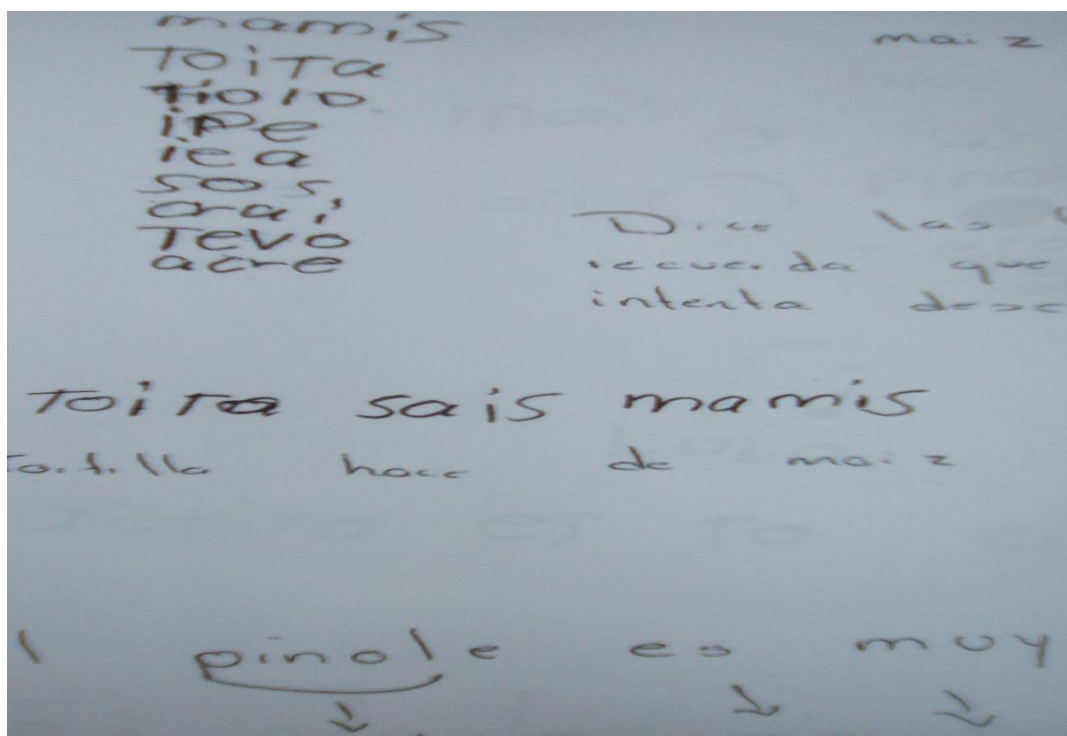 mamis maiz
TOiTa
tiolo
iPe
iea
sos
orai
Tevo Dice las
acre recuerda que
intenta desc
Toira sais mamis
Tortilla hace de maiz
pinole es muy